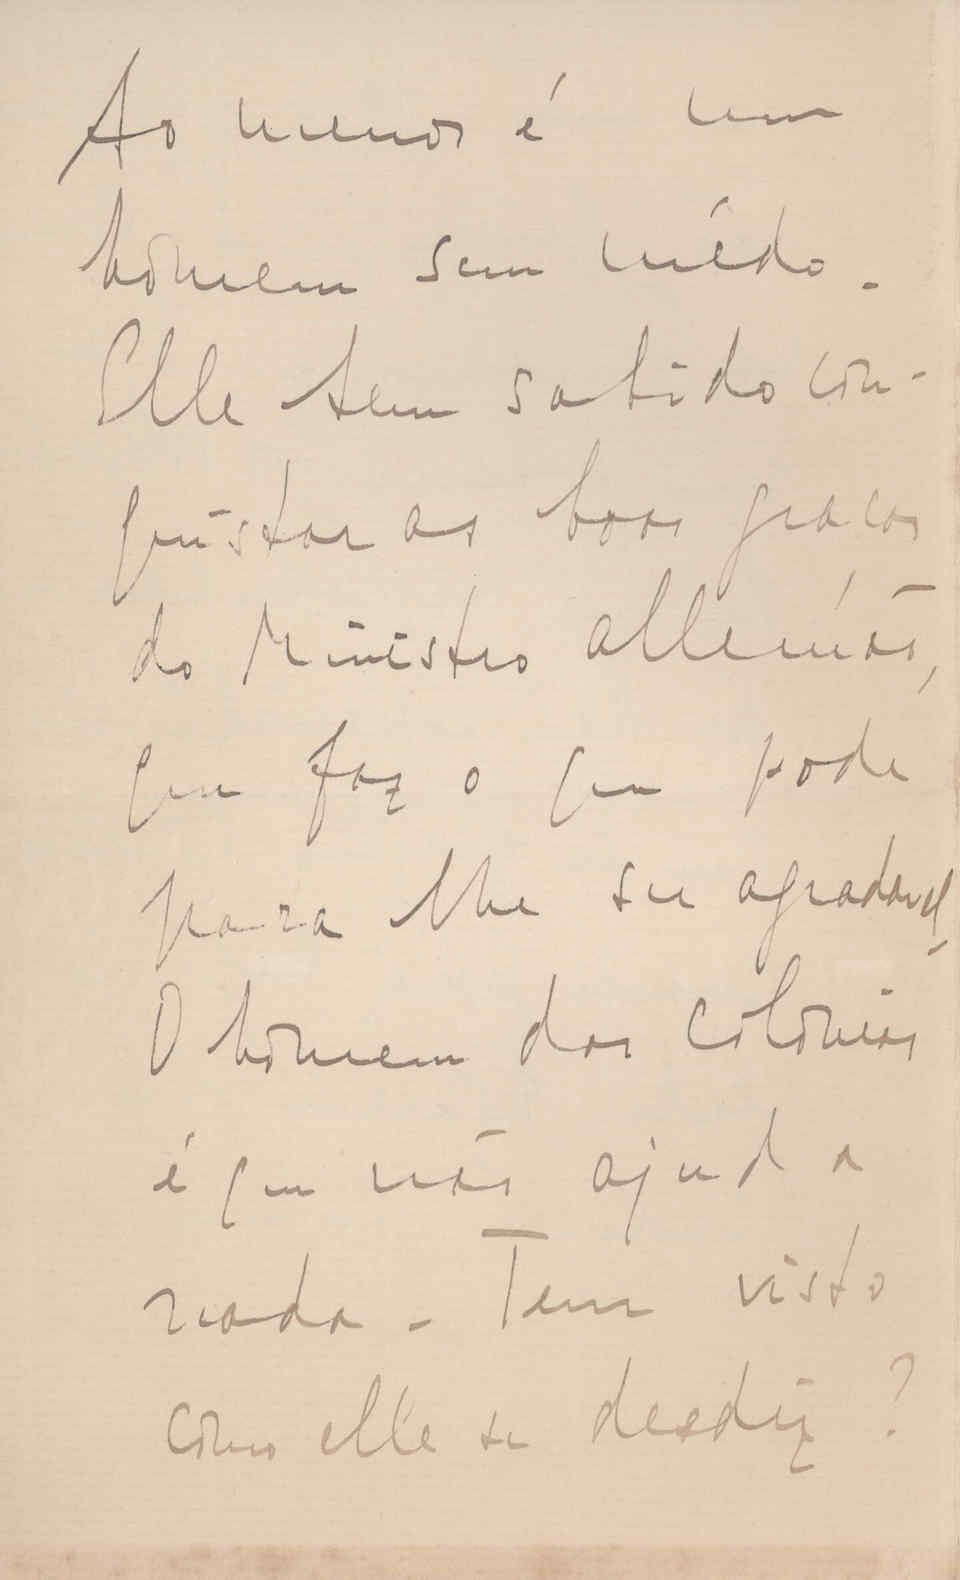 Ao menos é um
homem sem mêdo.
Elle tem sabido con-
quistar as boas graças
do Ministro allemão,
que faz o que pode
para lhe ser agradavel.
O homem das colonias
é que não ajuda
nada. Tem visto
como elle se desdiz?